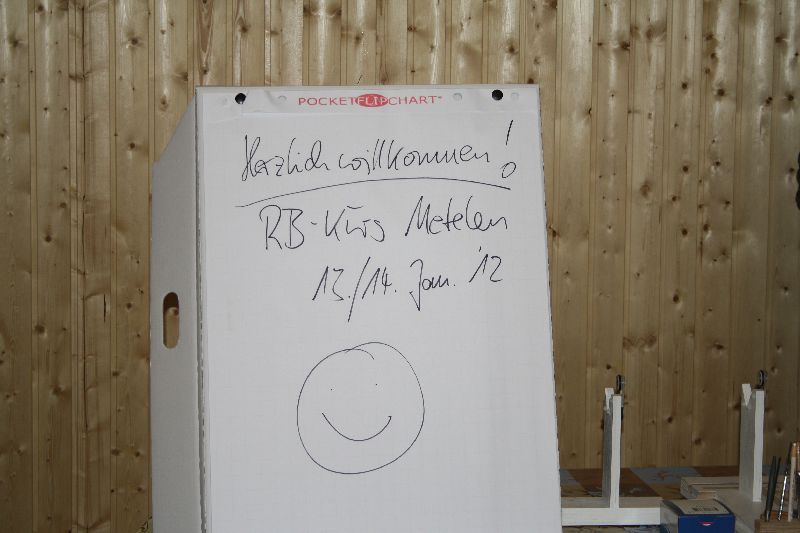 POCKETFLIPCHART
Herzlich willkommen!
RB-Kurs Metelen
13./14. Jan. '12